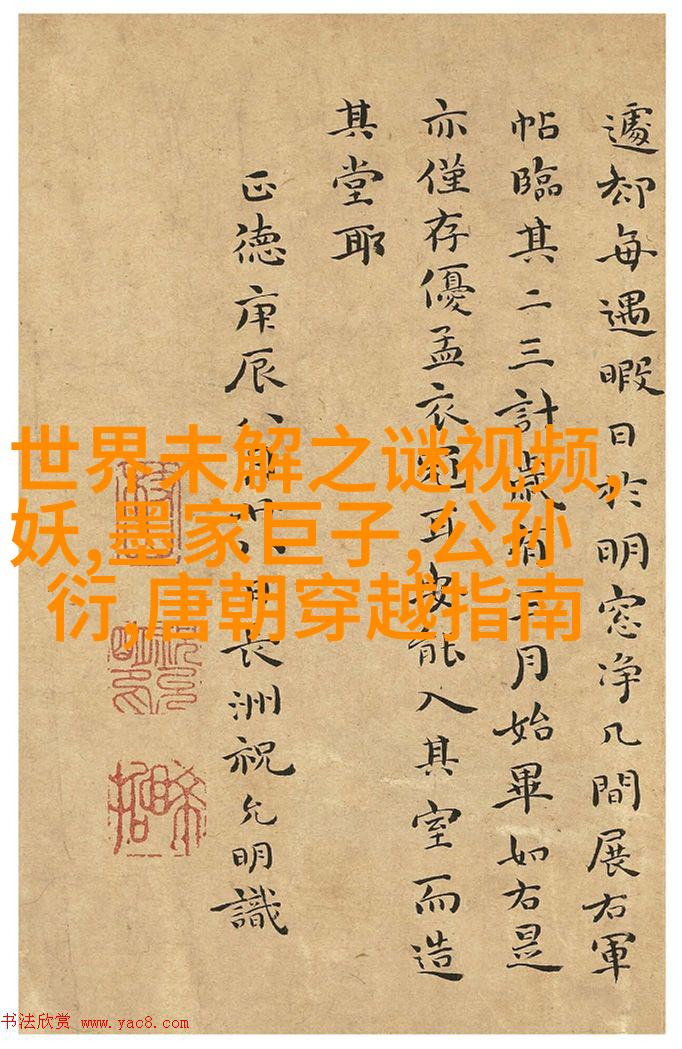 遽却每遇暇日於明窓净几間展右軍
帖臨其二三計歲有五月始畢如右是
亦僅存優孟衣冠耳安能入其室而造
其堂耶
正德庚辰八日長洲祝允明識
世界未解之谜视频,
妖,墨家巨子,公孙
衍,唐朝穿越指南
书法欣赏 www.yac8.com